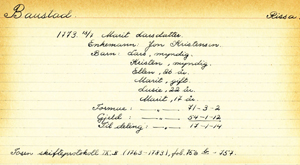 Baustad. Rissa.
1773 11/1 Marit Larsdatter.
Enkemann: Jon Kristensen.
Barn: Lars, myndig.
Kristen, myndig.
Ellen, 26 år.
Marit, gift.
Lusie, 22 år.
Marit, 17 år.
Formue: — " — 71-3-2
Gjeld: — " — 54-1-12
Til deling: — " — 17-1-14
Fosen skifteprotokoll IX.B (1763-1783), fol. 156 b - 157.